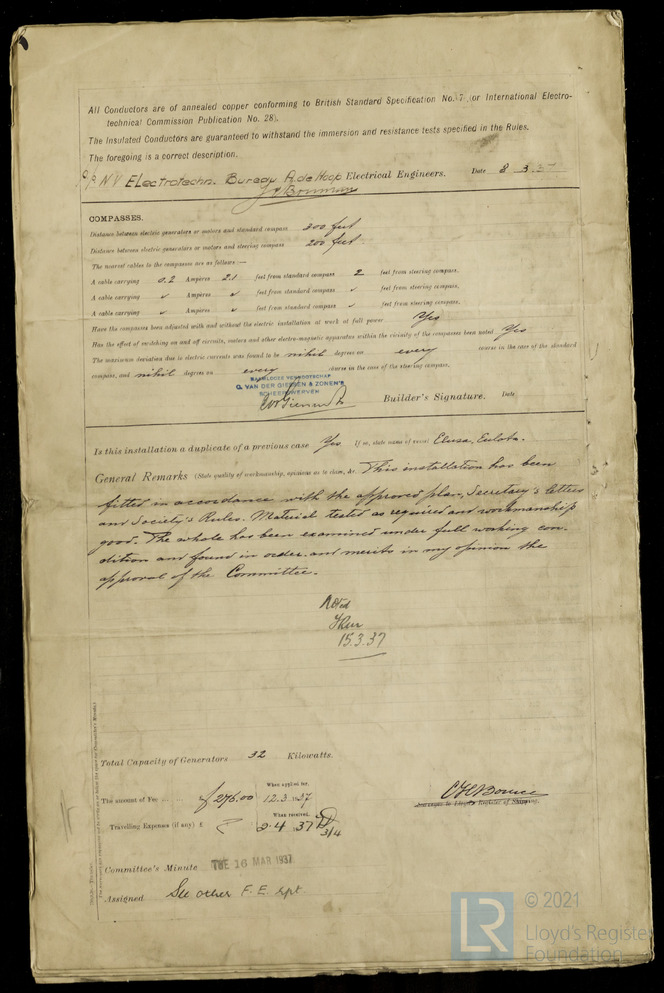 All Conductors are of annealed copper conforming to British Standard Specification No. 7 (or International Electro-
technical Commission Publication No. 28).
The Insulated Conductors are guaranteed to withstand the immersion and resistance tests specified in the Rules.
The foregoing is a correct description.
N V Electrotechn. Bureau A. de Hoop Electrical Engineers. Date 8 3 37
COMPASSES.
Distance between electric generators or motors and standard compass 300 feet
Distance between electric generators or motors and steering compass 200 feet
The nearest cables to the compasses are as follows:—
A cable carrying 0.2 Ampères 2.1 feet from standard compass 2 feet from steering compass.
A cable carrying ✓ Ampères ✓ feet from standard compass ✓ feet from steering compass.
A cable carrying ✓ Ampères ✓ feet from standard compass ✓ feet from steering compass.
Have the compasses been adjusted with and without the electric installation at work at full power Yes
Has the effect of switching on and off circuits, motors and other electro-magnetic apparatus within the vicinity of the compasses been noted Yes
The maximum deviation due to electric currents was found to be nihil degrees on every course in the case of the standard
compass, and nihil degrees on every course in the case of the steering compass.
NAAMLOOZE VENNOOTSCHAP
C. VAN DER GIESSEN & ZONEN'S
SCHEEPSWERVEN
Builder's Signature. Date
Is this installation a duplicate of a previous case Yes If so, state name of vessel Elusa, Eulota.
General Remarks (State quality of workmanship, opinions as to class, &c. This installation has been
fitted in accordance with the approved plan, Secretary's letters
and Society's Rules. Material tested as required and workmanship
good. The whole has been examined under full working con-
dition and found in order and merits in my opinion the
approval of the Committee.
Noted
15.3.37
Total Capacity of Generators 32 Kilowatts.
The amount of Fee ... ƒ 276.00 When applied for, 12.3.1937
Surveyor to Lloyd's Register of Shipping.
Travelling Expenses (if any) £ When received, 2.4 1937 3/4
Committee's Minute TUE 16 MAR 1937
Assigned See other F.E. rpt.
LR
© 2021
Lloyd's Register
Foundation